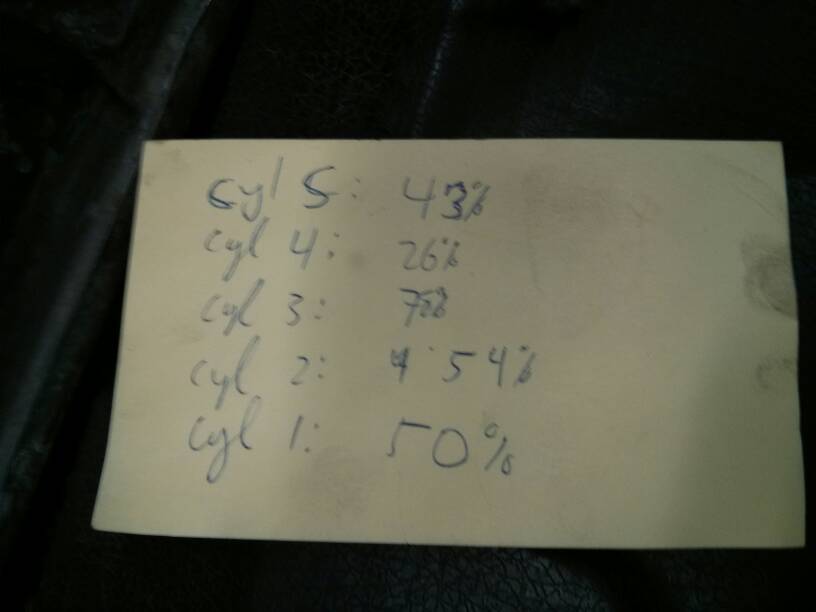 cyl 5: 43%
cyl 4: 26%
cyl 3:
cyl 2: 54%
cyl 1: 50%